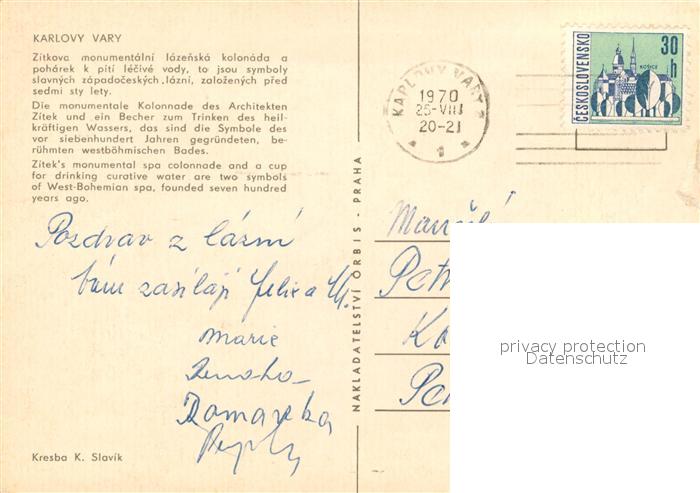 KARLOVY VARY
Zítkova monumentální lázeňská kolonáda a
pohárek k pití léčivé vody, to jsou symboly
slavných západočeských lázní, založených před
sedmi sty lety.
Die monumentale Kolonnade des Architekten
Zítek und ein Becher zum Trinken des heil-
kräftigen Wassers, das sind die Symbole des
vor siebenhundert Jahren gegründeten, be-
rühmten westböhmischen Bades.
Zítek's monumental spa colonnade and a cup
for drinking curative water are two symbols
of West-Bohemian spa, founded seven hundred
years ago.
Pozdrav z lázní
Vám zasílají
Marie
Kresba K. Slavík
NAKLADATELSTVÍ ORBIS - PRAHA
KARLOVY VARY
1970
25-VIII
20-21
1
ČESKOSLOVENSKO
30
h
KOŠICE
privacy protection
Datenschutz